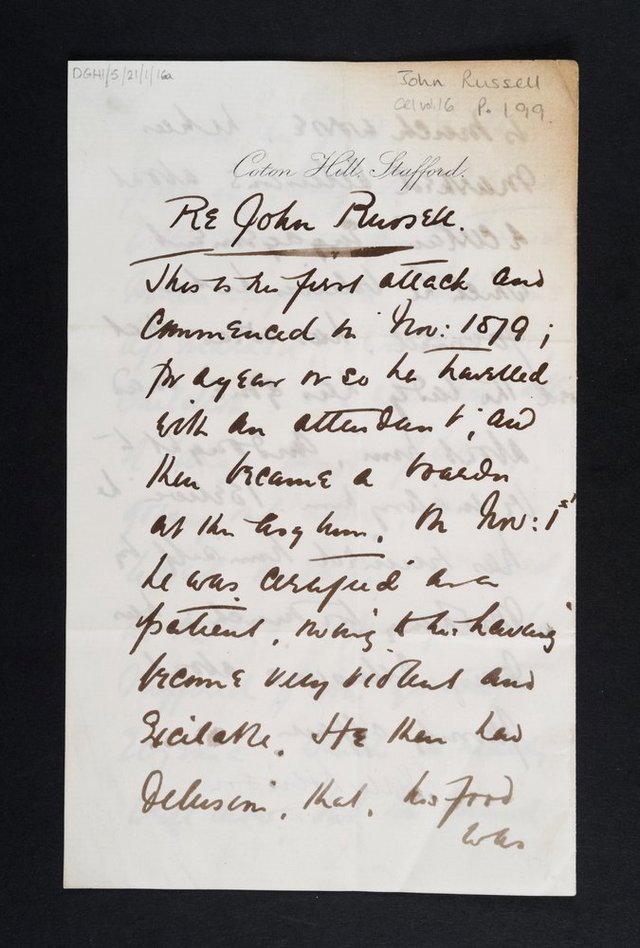 DGH1/5/21/1/16a
John Russell
CRI vol. 16 P. 199.
Coton Hill, Stafford.
Re John Russell.
This is his first attack and
commenced in Nov: 1879;
for a year or so he travelled
with an attendant; and
then became a boarder
at the Asylum. On Nov: 1st
he was certified as a
patient, owing to his having
become very violent and
Excitable. He then had
Delusions, that, his food
was